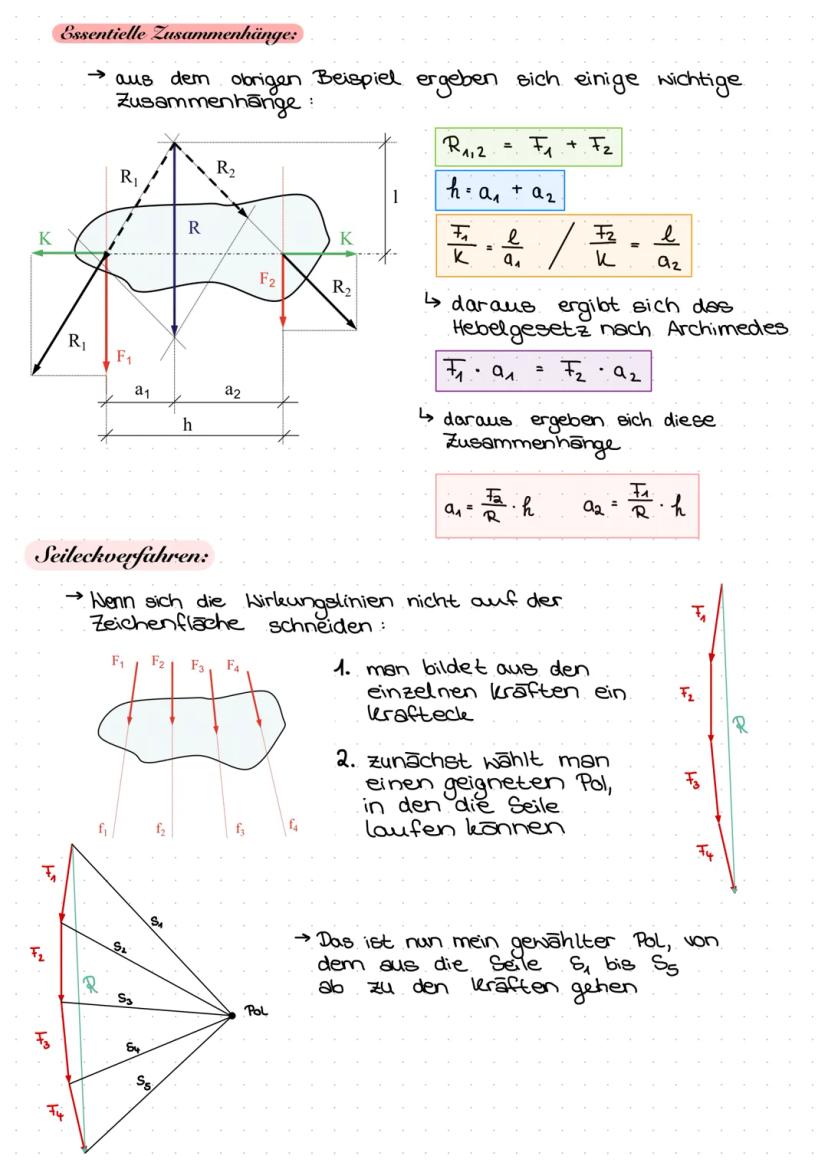 Essentielle Zusammenhänge:
→ aus dem obrigen Beispiel ergeben sich einige wichtige
Zusammenhänge:
R₁
R₂
R
K
K
l
F₂
R₂
R₁
F₁
a₁
a₂
h
R₁,₂ = F₁ + F₂
h = a₁ + a₂
F₁/K = l/a₁ / F₂/K = l/a₂
↳ daraus ergibt sich das
Hebelgesetz nach Archimedes
F₁ · a₁ = F₂ · a₂
↳ daraus ergeben sich diese
Zusammenhänge
a₁ = F₂/R · h a₂ = F₁/R · h
Seileckverfahren:
→ Wenn sich die Wirkungslinien nicht auf der
Zeichenfläche schneiden:
F₁ F₂ F₃ F₄
f₁ f₂ f₃ f₄
1. man bildet aus den
einzelnen Kräften ein
Krafteck
2. zunächst wählt man
einen geigneten Pol,
in den die Seile
laufen können
F₁
F₂
R
F₃
F₄
F₁
S₁
F₂
S₂
R
S₃
Pol
F₃
S₄
S₅
F₄
→ Das ist nun mein gewählter Pol, von
dem aus die Seile S₁ bis S₅
ab zu den Kräften gehen